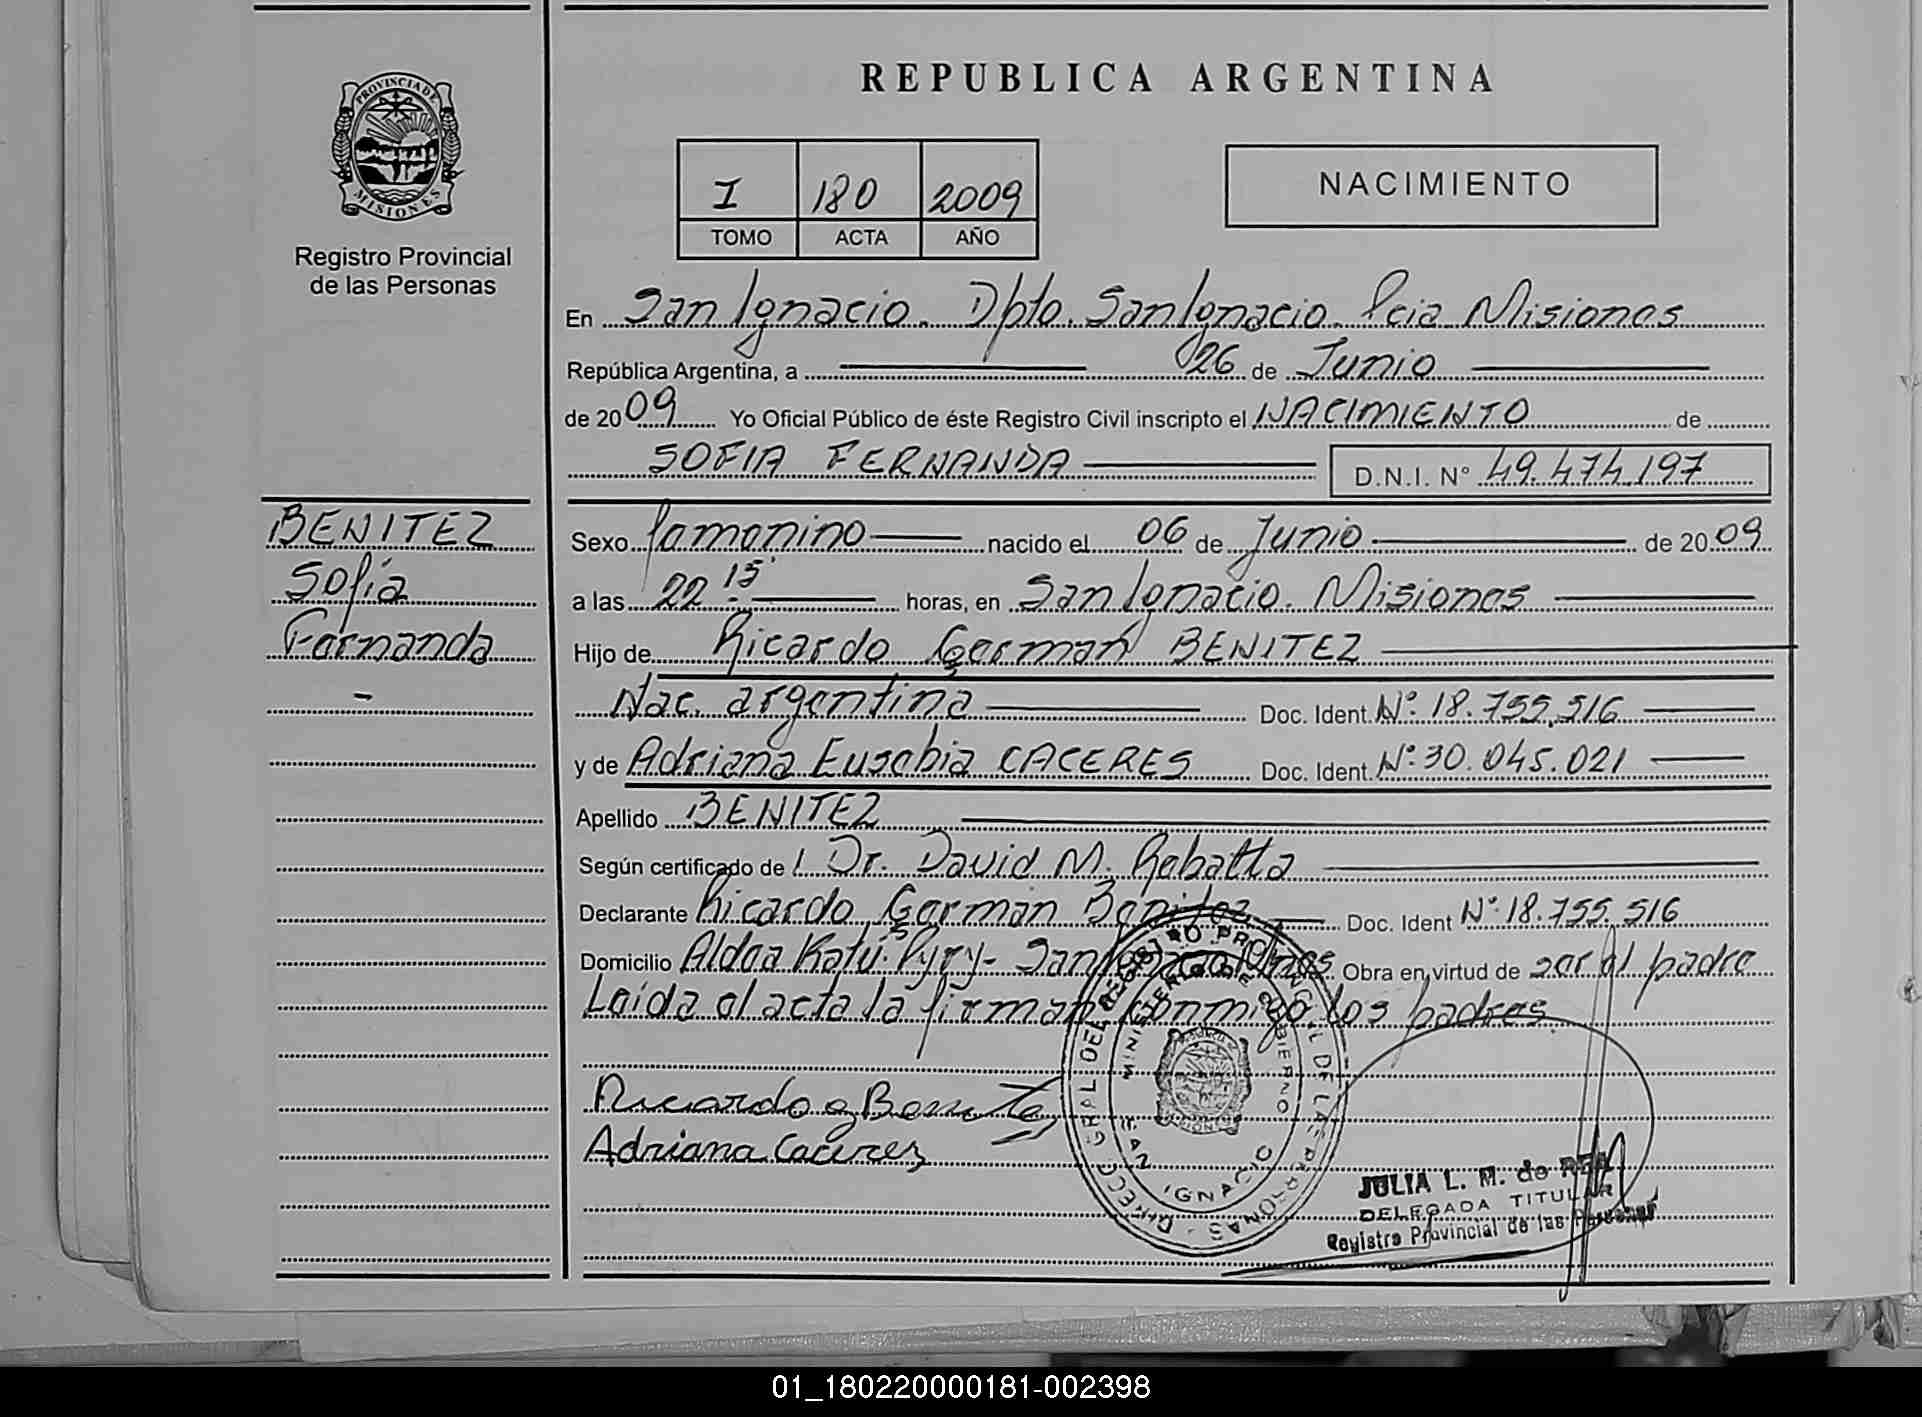 REPUBLICA ARGENTINA
PROVINCIA DE
MISIONES
Registro Provincial
de las Personas
I 180 2009
TOMO ACTA AÑO
NACIMIENTO
En San Ignacio. Dpto. San Ignacio. Pcia Misiones
República Argentina, a 26 de Junio
de 2009 Yo Oficial Público de éste Registro Civil inscripto el NACIMIENTO de
SOFIA FERNANDA D.N.I. N° 49.474.197
BENITEZ
Sofia
Fernanda
-
Sexo femenino nacido el 06 de Junio de 2009
a las 22 15' horas, en San Ignacio. Misiones
Hijo de Ricardo German BENITEZ
Nac. argentina Doc. Ident. N°: 18.755.516
y de Adriana Eusebia CACERES Doc. Ident. N°: 30.045.021
Apellido BENITEZ
Según certificado de l Dr. David M. Rebatta
Declarante Ricardo German Benitez Doc. Ident N°: 18.755.516
Domicilio Aldea Katú Pyry - San Ignacio Mnes. Obra en virtud de ser el padre
Leída el acta la firman conmigo los padres.
Ricardo g Benitez
Adriana Caceres
DIRECC. GRAL DEL REGISTRO PROVINCIAL DE LAS PERSONAS
MINISTERIO DE GOBIERNO
SAN IGNACIO
JULIA L. M. de REA
DELEGADA TITULAR
Registro Provincial de las Personas
01_180220000181-002398